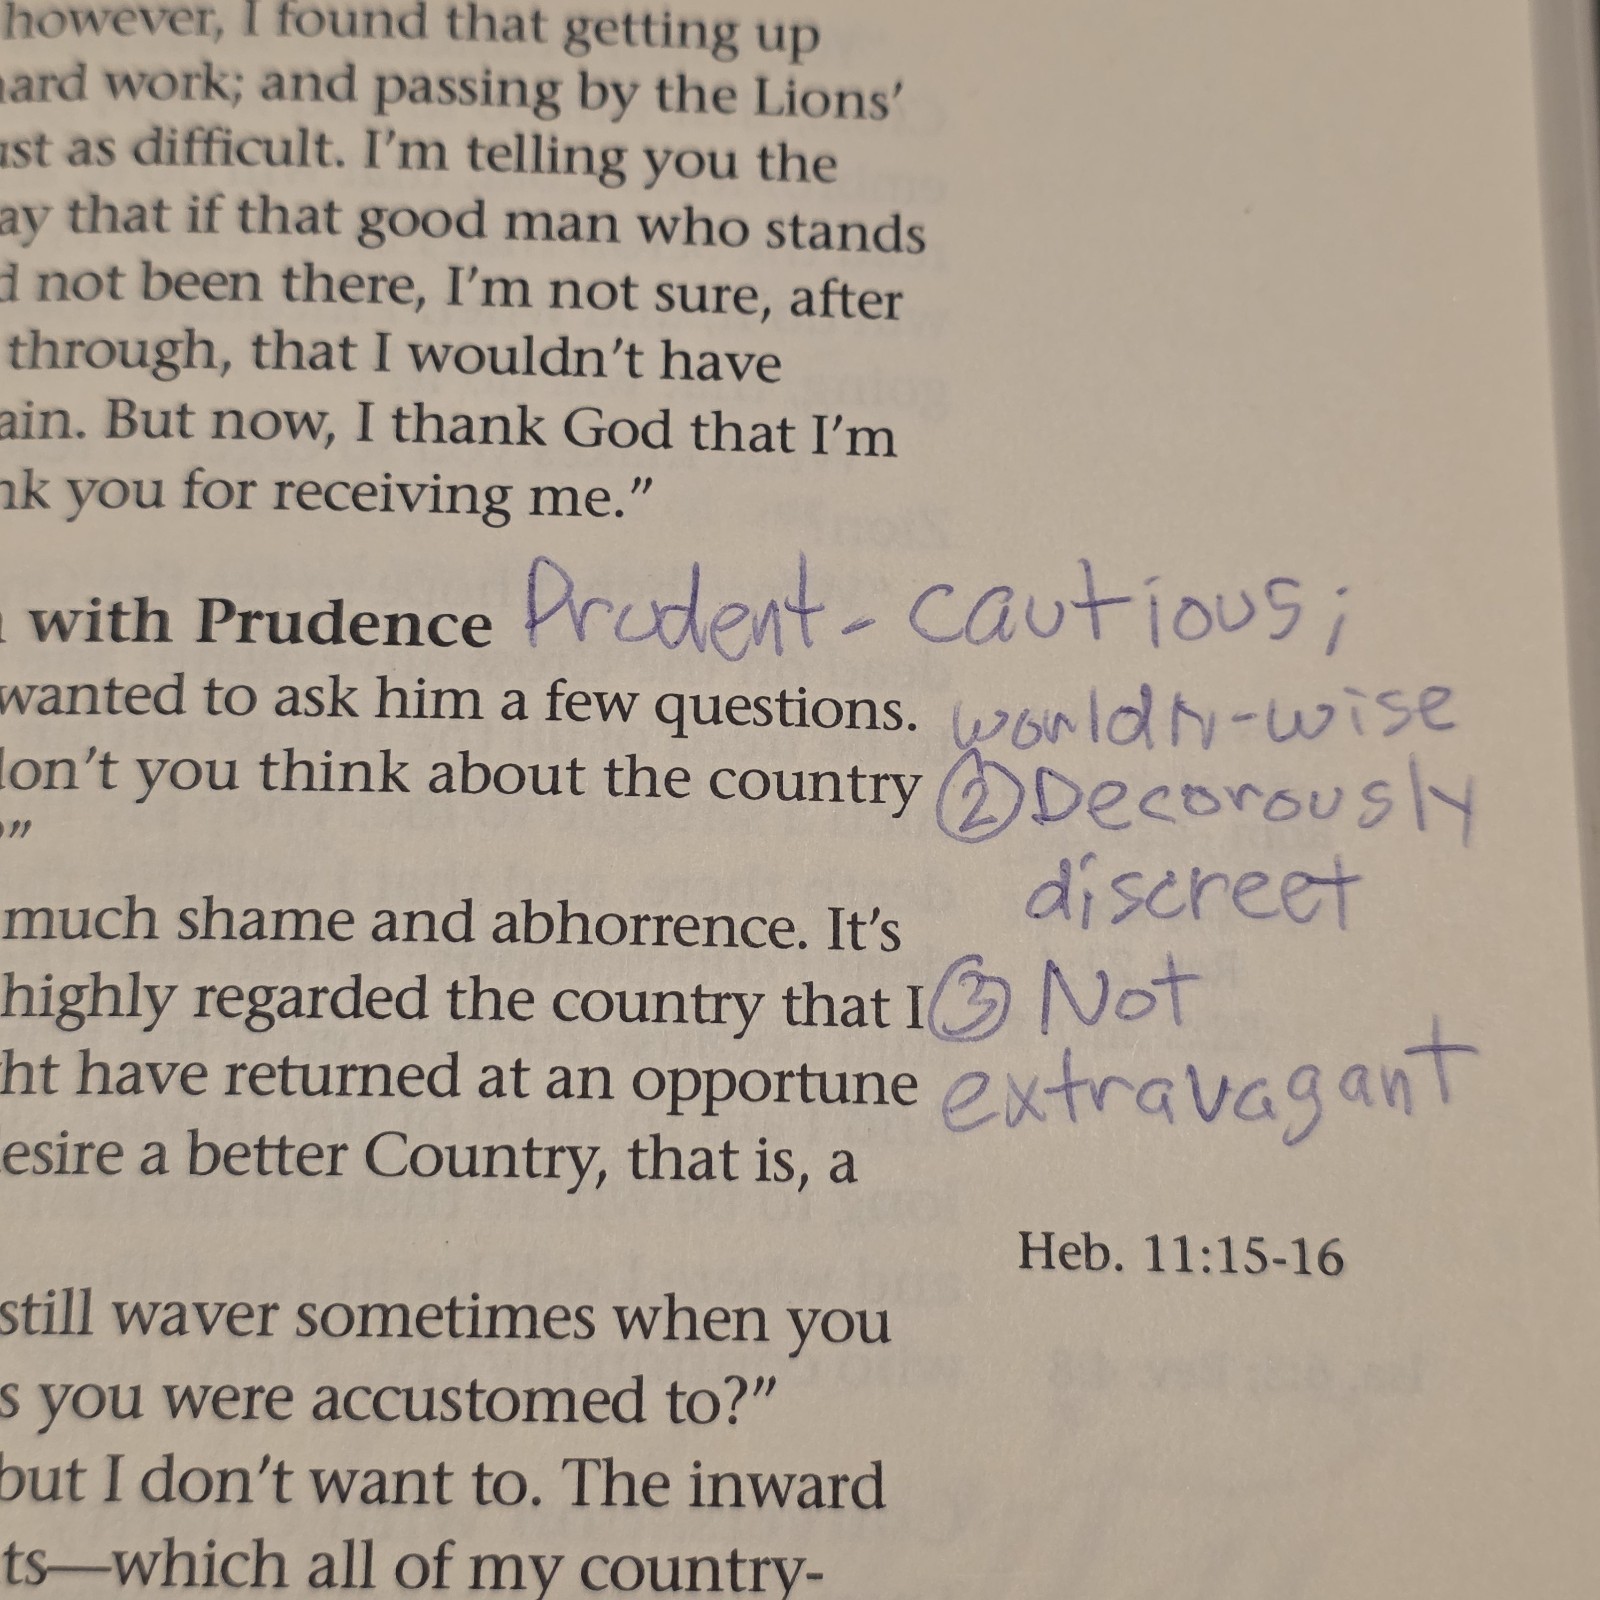 however, I found that getting up
hard work; and passing by the Lions’
ust as difficult. I’m telling you the
ay that if that good man who stands
d not been there, I’m not sure, after
through, that I wouldn’t have
ain. But now, I thank God that I’m
nk you for receiving me.”
with Prudence Prudent- cautious;
wanted to ask him a few questions. worldly-wise
don’t you think about the country ② Decorously
?”
discreet
much shame and abhorrence. It’s
highly regarded the country that I ③ Not
ht have returned at an opportune extravagant
esire a better Country, that is, a
Heb. 11:15-16
still waver sometimes when you
s you were accustomed to?”
but I don’t want to. The inward
ts—which all of my country-